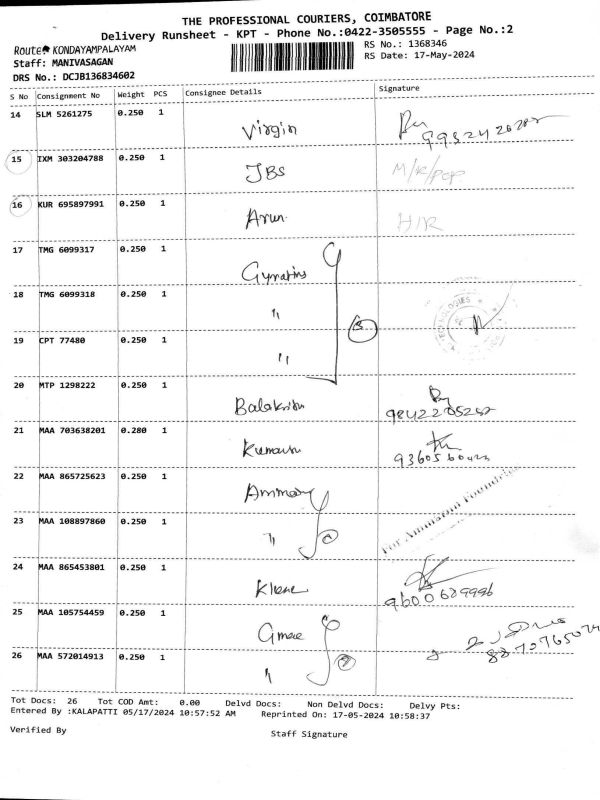 THE PROFESSIONAL COURIERS, COIMBATORE
Delivery Runsheet - KPT - Phone No.:0422-3505555 - Page No.:2
Route KONDAYAMPALAYAM
RS No.: 1368346
Staff: MANIVASAGAN
RS Date: 17-May-2024
DRS No.: DCJB136834602
S No Consignment No Weight PCS Consignee Details Signature
14 SLM 5261275 0.250 1 Virgin
15 IXM 303204788 0.250 1 JBS M/R/POP
16 KUR 695897991 0.250 1 Arun H/R
17 TMG 6099317 0.250 1
18 TMG 6099318 0.250 1 "
19 CPT 77480 0.250 1 "
20 MTP 1298222 0.250 1
21 MAA 703638201 0.280 1
22 MAA 865725623 0.250 1
23 MAA 108897860 0.250 1 "
24 MAA 865453801 0.250 1 9600689996
25 MAA 105754459 0.250 1
26 MAA 572014913 0.250 1 "
Tot Docs: 26 Tot COD Amt: 0.00 Delvd Docs: Non Delvd Docs: Delvy Pts:
Entered By :KALAPATTI 05/17/2024 10:57:52 AM Reprinted On: 17-05-2024 10:58:37
Verified By Staff Signature